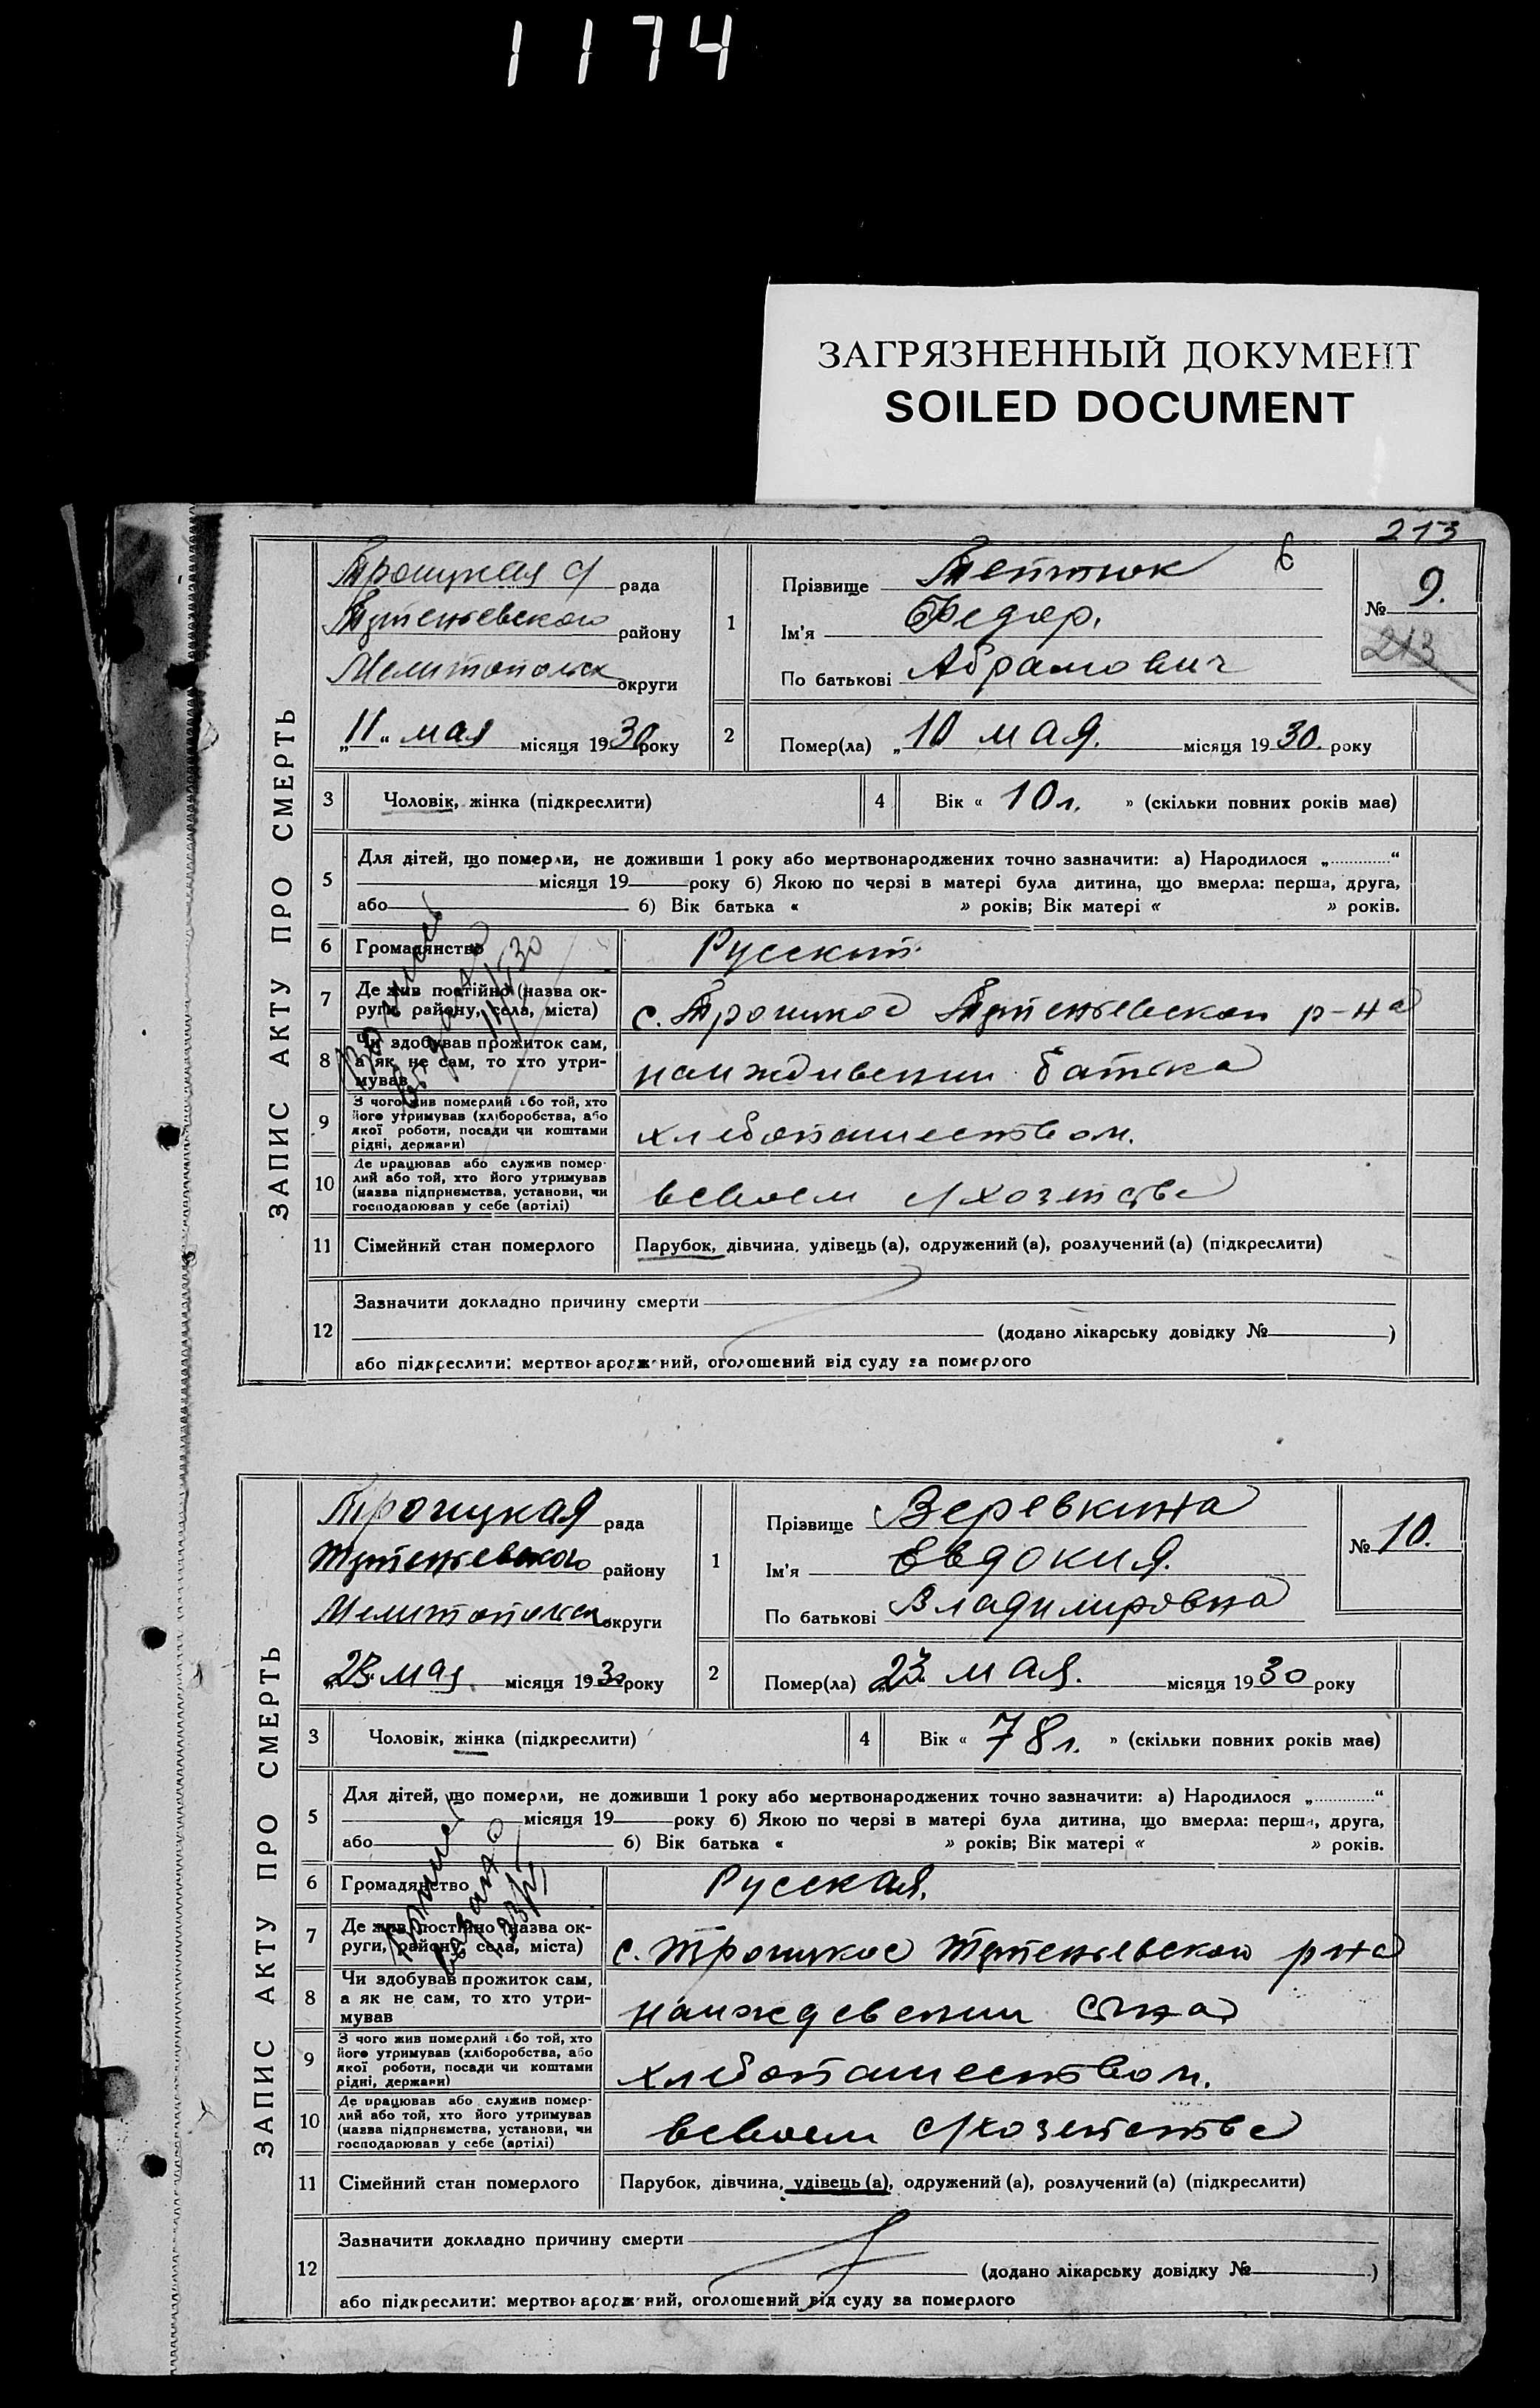 1174
ЗАГРЯЗНЕННЫЙ ДОКУМЕНТ
SOILED DOCUMENT
213
ЗАПИС АКТУ ПРО СМЕРТЬ
Троицкая с/ рада
району
Мелитопольск округи
„11„ мая місяця 1930 року
1
Прізвище Тептюк
6
Ім'я Федор.
По батькові Абрамович
№ 9.
213
2 Помер(ла) „10 мая. місяця 1930. року
3 Чоловік, жінка (підкреслити)
4 Вік « 10 л. » (скільки повних років має)
5 Для дітей, що померли, не доживши 1 року або мертвонароджених точно зазначити: а) Народилося „............“
місяця 19 року б) Якою по черзі в матері була дитина, що вмерла: перша, друга,
або 6) Вік батька « » років; Вік матері « » років.
6 Громадянство Русский.
7 Де жив постійно (назва ок-
руги, району, села, міста)
с. Троицкое р-на
8 Чи здобував прожиток сам,
а як не сам, то хто утри-
мував
на иждивении батька
9 З чого жив померлий або той, хто
його утримував (хліборобства, або
якої роботи, посади чи коштами
рідні, держави)
хлебопашеством.
10 Де працював або служив помер-
лий або той, хто його утримував
(назва підприємства, установи, чи
господарював у себе (артілі)
всвоем с/хозяйстве
11 Сімейний стан померлого Парубок, дівчина, удівець (а), одружений (а), розлучений (а) (підкреслити)
12 Зазначити докладно причину смерти
(додано лікарську довідку № )
або підкреслити: мертвонароджений, оголошений від суду за померлого
ЗАПИС АКТУ ПРО СМЕРТЬ
Троицкая рада
району
Мелитопольск округи
„23„ мая. місяця 1930 року
1
Прізвище Веревкина
Ім'я Евдокия.
По батькові Владимировна
№ 10.
2 Помер(ла) 23 мая. місяця 1930 року
3 Чоловік, жінка (підкреслити)
4 Вік « 78 л. » (скільки повних років має)
5 Для дітей, що померли, не доживши 1 року або мертвонароджених точно зазначити: а) Народилося „............“
місяця 19 року б) Якою по черзі в матері була дитина, що вмерла: перша, друга,
або 6) Вік батька « » років; Вік матері « » років.
6 Громадянство Русская.
7 Де жив постійно (назва ок-
руги, району, села, міста)
с. Троицкое р-на
8 Чи здобував прожиток сам,
а як не сам, то хто утри-
мував
на иждевении сына
9 З чого жив померлий або той, хто
його утримував (хліборобства, або
якої роботи, посади чи коштами
рідні, держави)
хлебопашеством.
10 Де працював або служив помер-
лий або той, хто його утримував
(назва підприємства, установи, чи
господарював у себе (артілі)
всвоем с/хозействе
11 Сімейний стан померлого Парубок, дівчина, удівець (а), одружений (а), розлучений (а) (підкреслити)
12 Зазначити докладно причину смерти
(додано лікарську довідку № )
або підкреслити: мертвонароджений, оголошений від суду за померлого